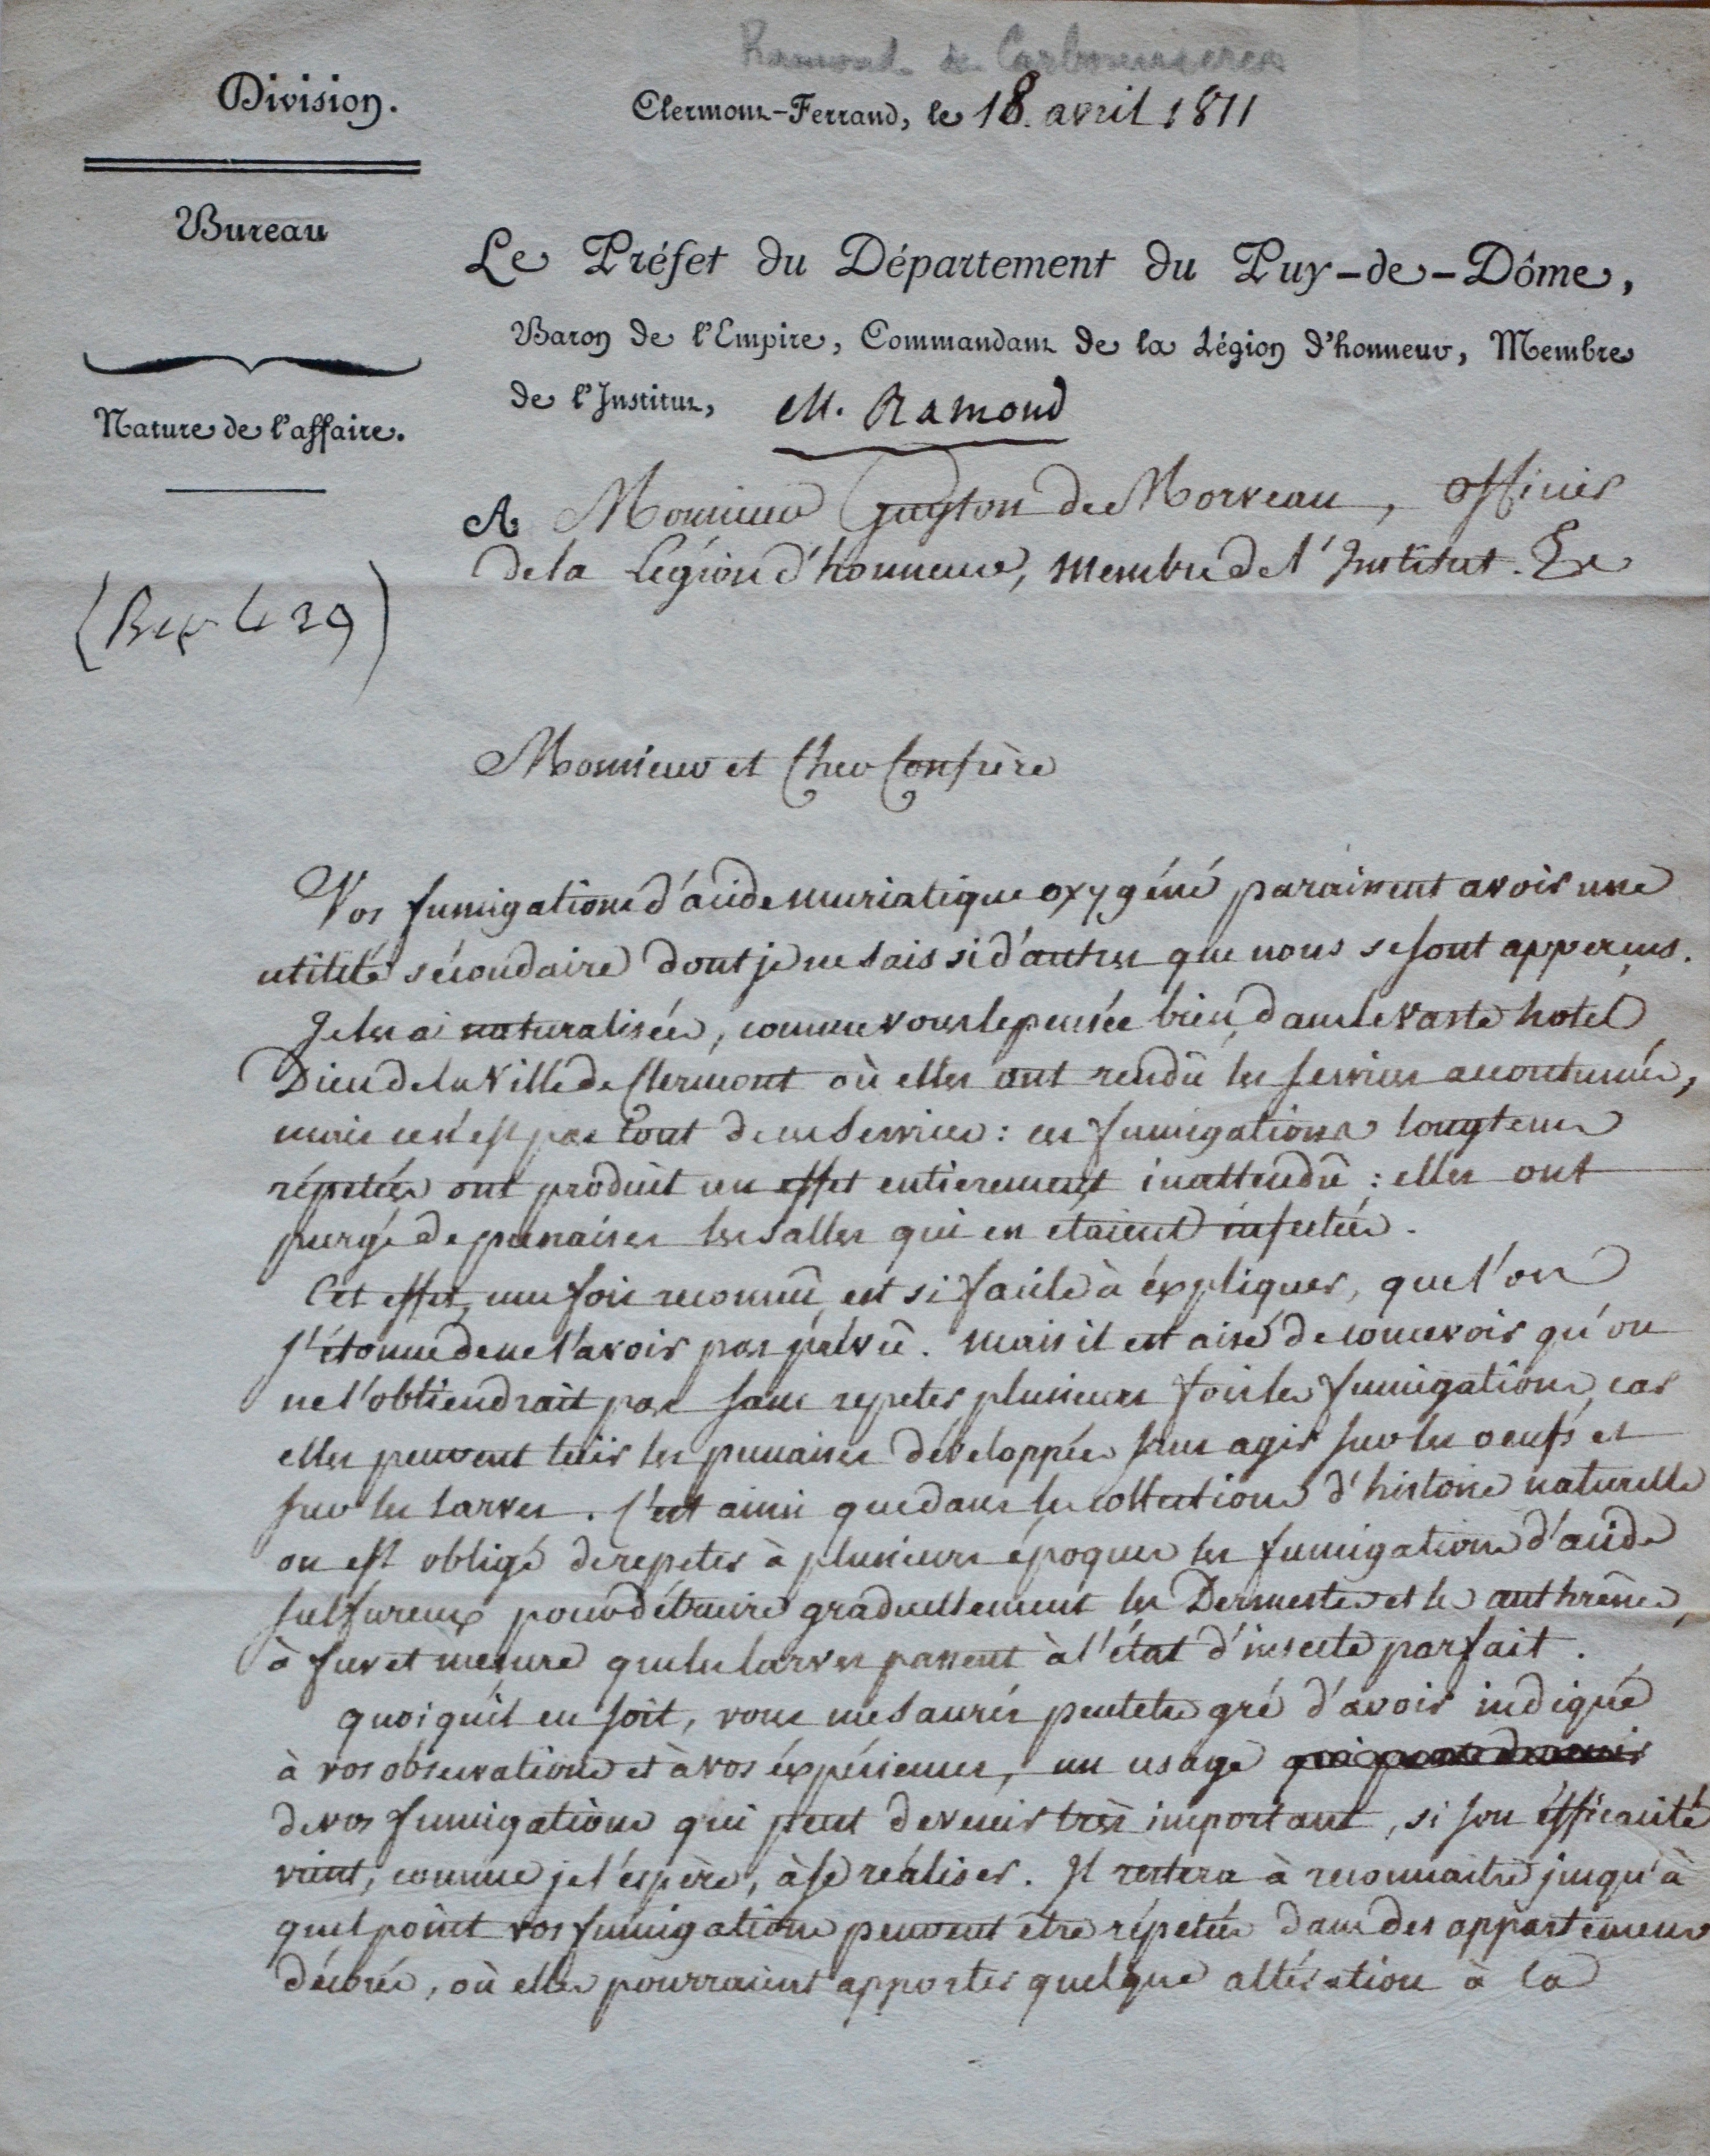 Ramond de Carbonnieres
Division.
Clermont-Ferrand, le 18. avril 1811
Bureau
Le Préfet du Département du Puy-de-Dôme,
Baron de l'Empire, Commandant de la Légion d'honneur, Membre
de l'Institut, M. Ramond
Nature de l'affaire.
A Monsieur Guyton de Morveau, officier
de la Légion d'honneur, membre de l'Institut. &c
(Rep le 29)
Monsieur et Cher Confrère
Vos fumigations d'acide muriatique oxygéné paraissent avoir une
utilité sécondaire dont je ne sais si d'autres que nous se sont apperçus.
Je les ai naturalisées, comme vous le pensée bien, dans le vaste hotel
Dieu de la Ville de Clermont où elles ont rendû les services accoutumés,
mais ce n'est pas tout de ces services : ces fumigations longtems
répétées ont produit un effet entierement inattendû : elles ont
purgé de punaises les salles qui en étaient infectées.
Cet effet, une fois reconnû, est si facile à éxpliquer, que l'on
s'étonne de ne l'avoir pas prévû. mais il est aisé de concevoir qu'on
ne l'obtiendrait pas sans repeter plusieurs fois les fumigations, car
elles peuvent tuer les punaises dévelopées sans agir sur les oeufs et
sur les larves. C'est ainsi que dans les collections d'histoire naturelle
on est obligé de repeter à plusieurs époques les fumigations d'acide
sulfureux pour détruire graduellement les Dermestes et les anthrênes,
à fur et mesure que les larves passent à l'état d'insecte parfait.
quoiqu'il en soit, vous me saurés peutetre gré d'avoir indiqué
à vos observations et à vos éxpériences, un usage qui peut devenir
de vos fumigations qui peut devenir très important, si son éfficacité
vient, comme je l'espère, à se réaliser. Il restera à reconnaitre jusqu'à
quel point vos fumigations peuvent être répétées dans des appartemens
décorés, où elles pourraient apporter quelque altération à la